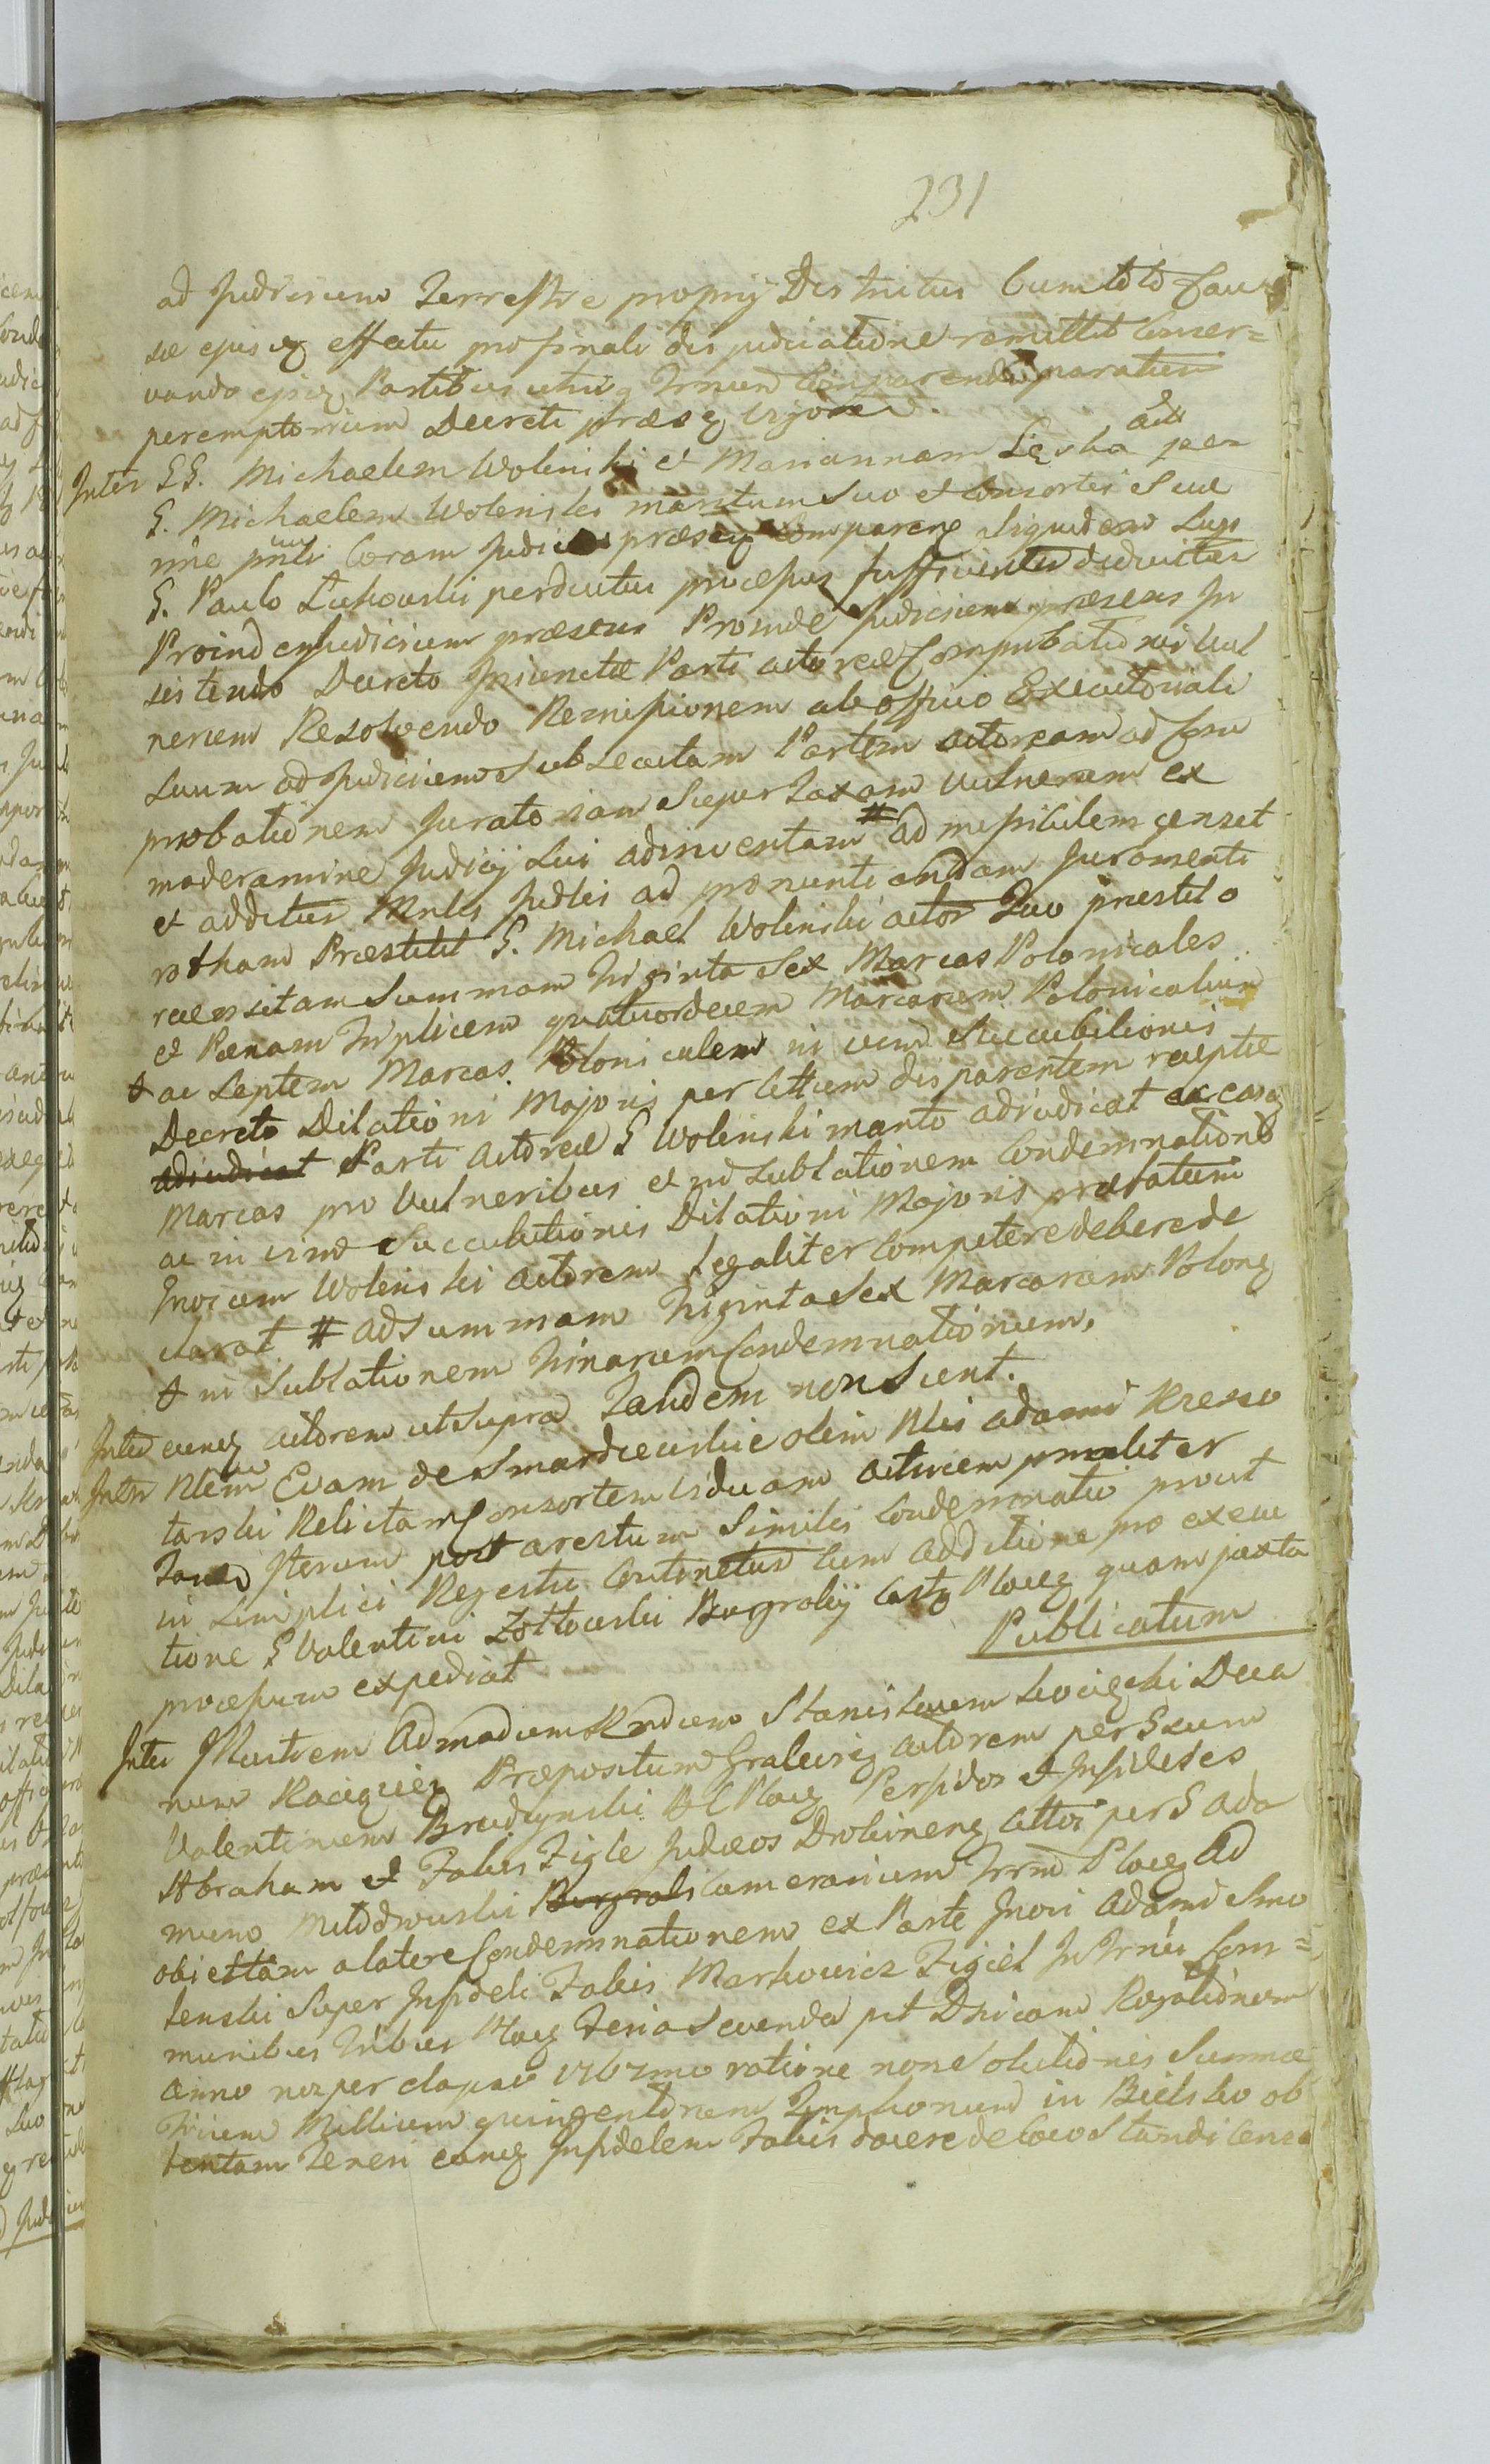 231
ad Judicium Terrestre proprij Districtus Cum toto Cau
sæ ejusq effectu pro finali disjudicatione remittit Conser=
vando ejsq Partibus utrisq Trnum Comparendi paratum
peremptorium Decreti præsq vigore.
Inter GG. Michaelem Wolinski et Mariannam Lęska act per
G. Michaelem Wolenski maritum suo et Consortis suæ
nne pnti Coram Judicio præsq Comparenq Siquidem Lun
G. Paulo Lukowski perducitur processus sufficienter deducitur
Proind eq Judicium præsens Proinde Judicium præsens In
sistendo Decreto Parti actoreæ Comprobationi Vul
nerum Resolvendo Remissionem ab officio Executoriali
suum ad Judicium Subsecutam Partem actoream ad Com
probationem Juratoriam super Taxam vulnerum ex
moderamine Judicij sui adinventam # admissibilem censet
et additur Mnlis Judlis ad pronuntiandam Juramenti
rotham Præstitit G. Michael Wolinski actor Quo præstito
recensitam Summam Triginta Sex Marcas Polonicales
et Pœnam Triplicem quatuordecem Marcarum Polonicalium
+ ac Septem Marcas Polonicalem in vim Succubitionis
Decreto Dilationis Majoris per Cittum disparentem receptæ
adiudicat Parti Actoreæ G Wolinski manto adiudicat ac easq
Marcas pro Vulneribus et in sublationem Condemnationis
ac in vim Succubitionis Dilationis Majoris prælatum
Gnosum Wolenski Actorem Legaliter Competere debere de
clarat # ad Summam Triginta Sex Marcarum Polonq
+ in Sublationem Trinarum Condemnationum.
Inter eunq actorem ut supra Tandem non sunt.
Inter Nlem Evam de Smardzewskie olim Nlis Adami Krzesso
tarski Relictam Consortem viduam actricem pnaliter
Tand Iterum post arestum Similis Condemnatio prout
in simplici Regestro Continetur Cum additione pro execu
tione G Valentini Zottowski Burgrabij Castr Plocq quam juxta
processum expediat
Publicatum
Inter Illustrem Admodum Rndum Stanislaum Deca
num Raciązieq Præpositum Gralewq actorem per Gsum
Valentinum Brudzynski B C Plocq Perfidos et Infideles
Abraham et Jakus Figle Judæos Drobinenq Cittos per G Ada
mum Mtodzowski Burgrab Camerarium Trrm Plocq ad
obiettam a latere Condemnationem ex Parte Gnosi Adami Smo
lenski super Infideli Jakus Markowicz Figiel In Trnis Com=
munibus Tribus Plocq Feria Secunda pt Dnicam Rogationum
Anno nuper elapso 1767mo ratione non Solutionis Summæ
Trium Millium quingentorum Tymphonum in Bielsko ob
tentam Teneri eunq Infidelem Jakus docere de loco Standi Cens